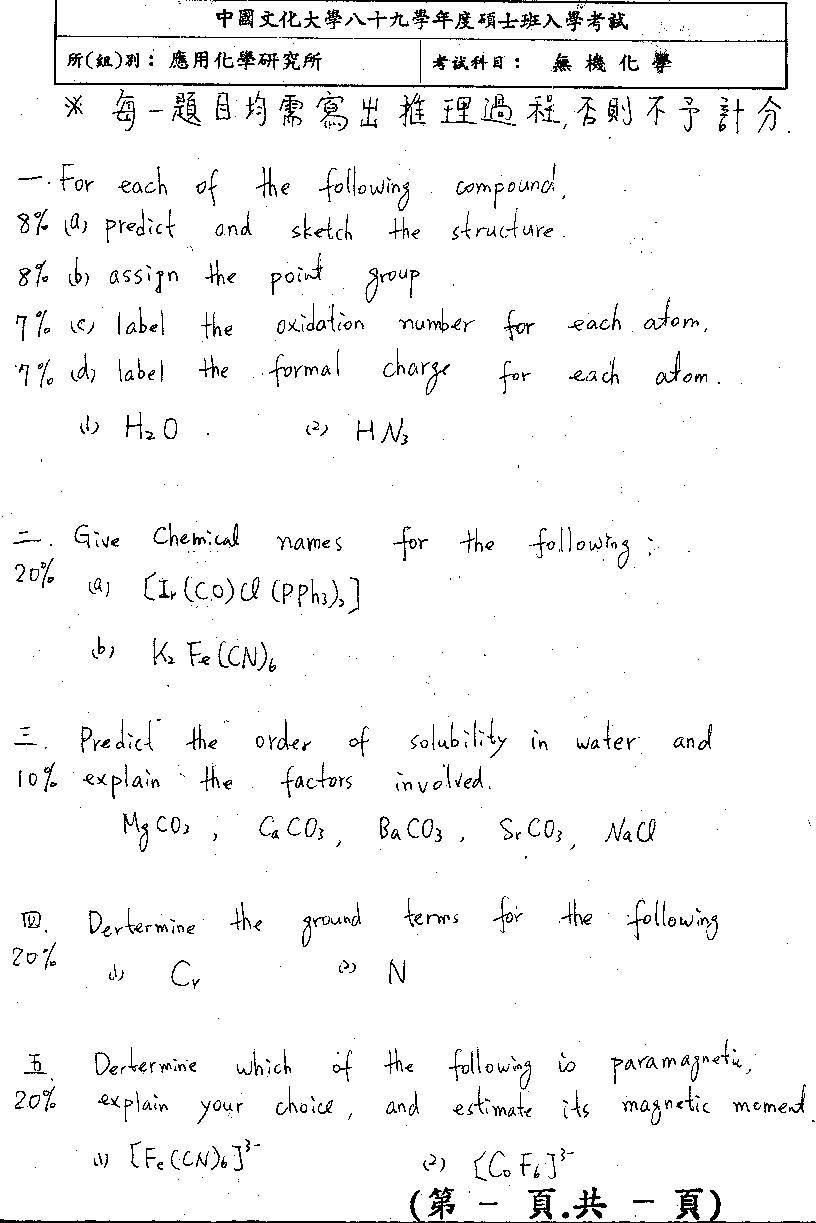 中國文化大學八十九學年度碩士班入學考試
所(組)別：應用化學研究所 考試科目：無機化學
※每一題目均需寫出推理過程,否則不予計分.
一. For each of the following compound,
8% (a) predict and sketch the structure.
8% (b) assign the point group
7% (c) label the oxidation number for each atom.
7% (d) label the formal charge for each atom.
(1) H₂O (2) HN₃
二. Give Chemical names for the following:
20% (a) [Ir(CO)Cl(PPh₃)₂]
(b) K₂Fe(CN)₆
三. Predict the order of solubility in water and
10% explain the factors involved.
MgCO₃, CaCO₃, BaCO₃, SrCO₃, NaCl
四. Dertermine the ground terms for the following
20% (1) Cr (2) N
五. Dertermine which of the following is paramagnetic,
20% explain your choice, and estimate its magnetic moment.
(1) [Fe(CN)₆]³⁻ (2) [CoF₆]³⁻
(第一頁.共一頁)